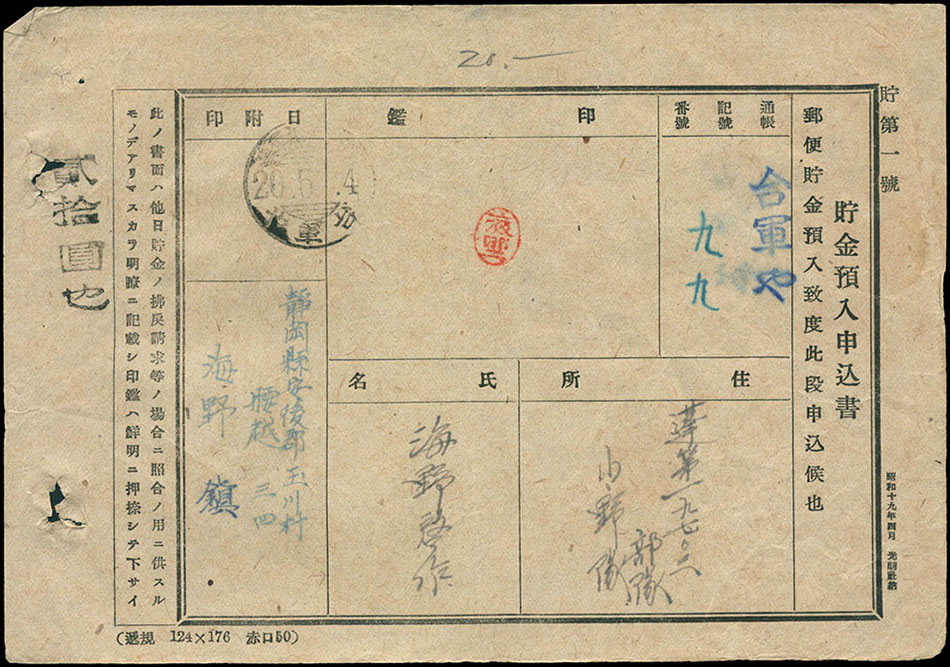 20.—
貯第一號
貯金預入申込書
郵便貯金預入致度此段申込候也
昭和十九年四月
通帳
記號
番號
台軍や
九九
印鑑
日附印
20.5.4
軍
住所
蓮第一九七〇六
部隊
小野隊
氏名
海野啓作
靜岡縣安倍郡玉川村
腰越三四
海野鎮
此ノ書面ハ他日貯金ノ拂戾請求等ノ場合ニ照合ノ用ニ供スル
モノデアリマスカラ明瞭ニ記載シ印鑑ハ鮮明ニ押捺シテ下サイ
貳拾圓也
(遞規 124×176 赤口50)